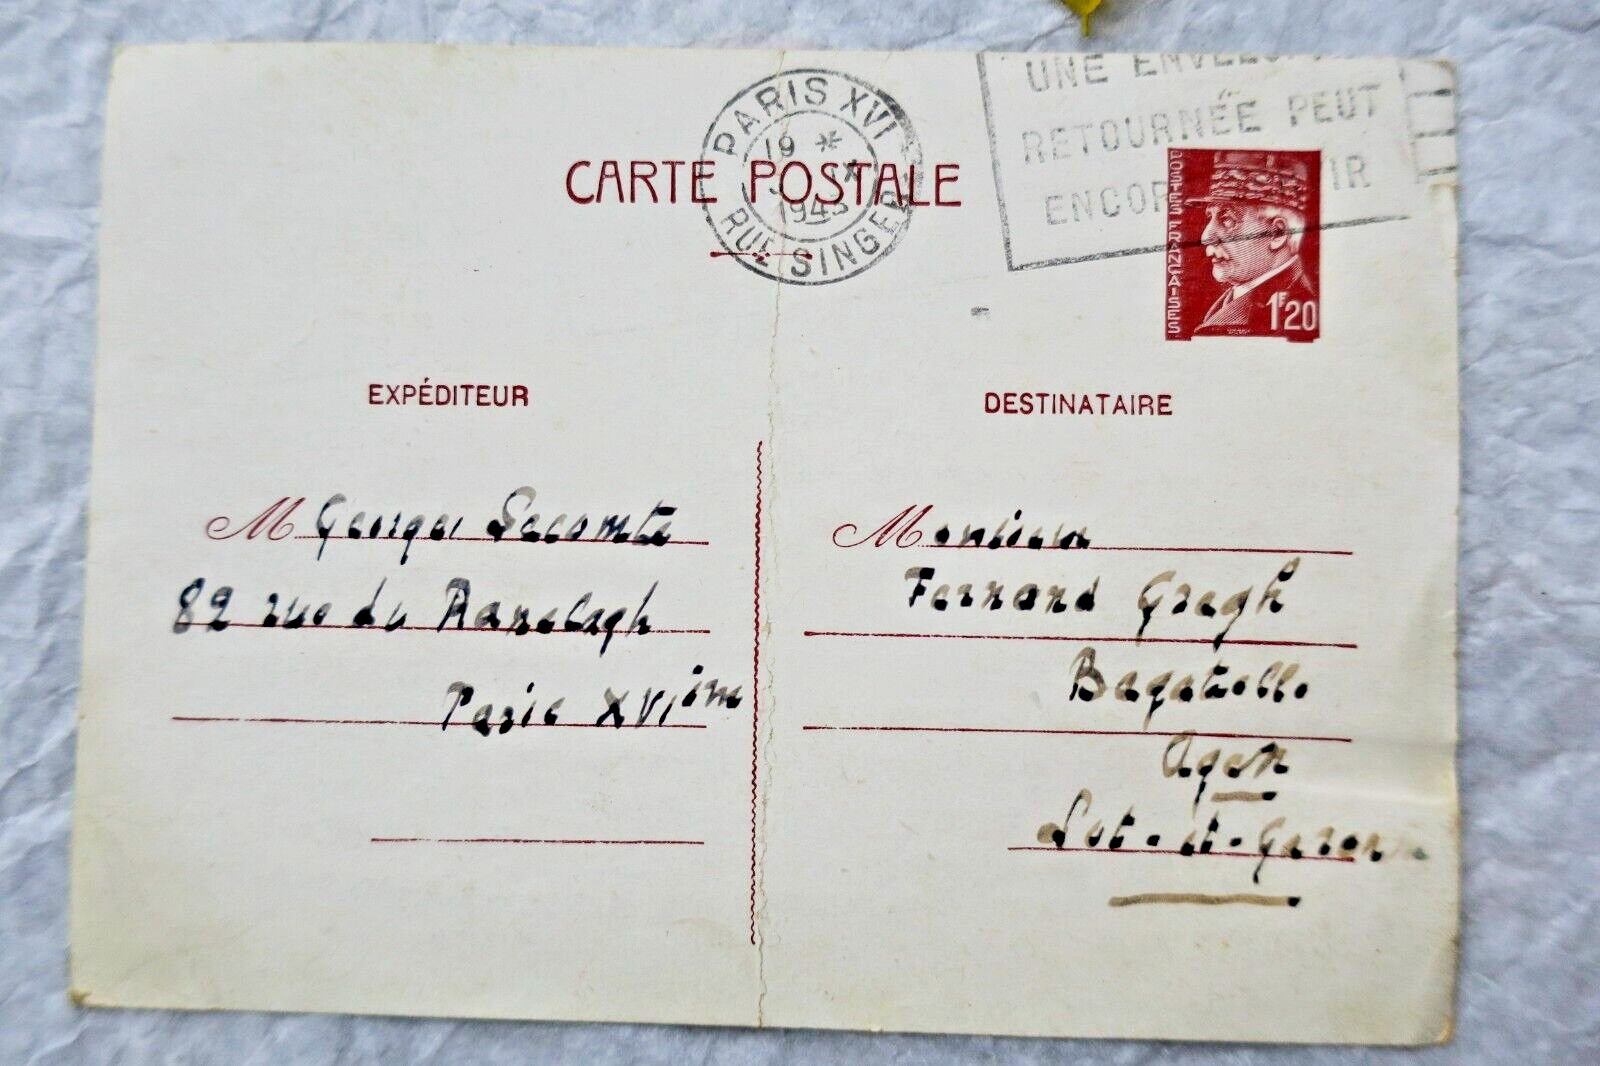 UNE ENVELOPPE
RETOURNÉE PEUT
ENCOR IR
PARIS XVI
19 * IX
1943
RUE SINGER
CARTE POSTALE
POSTES FRANÇAISES
1F20
EXPÉDITEUR
DESTINATAIRE
M Georges Lecomte
82 rue du Ranelagh
Paris XVIèm
Monsieur
Fernand Gregh
Bagatelle
Agen
Lot-et-Garonne